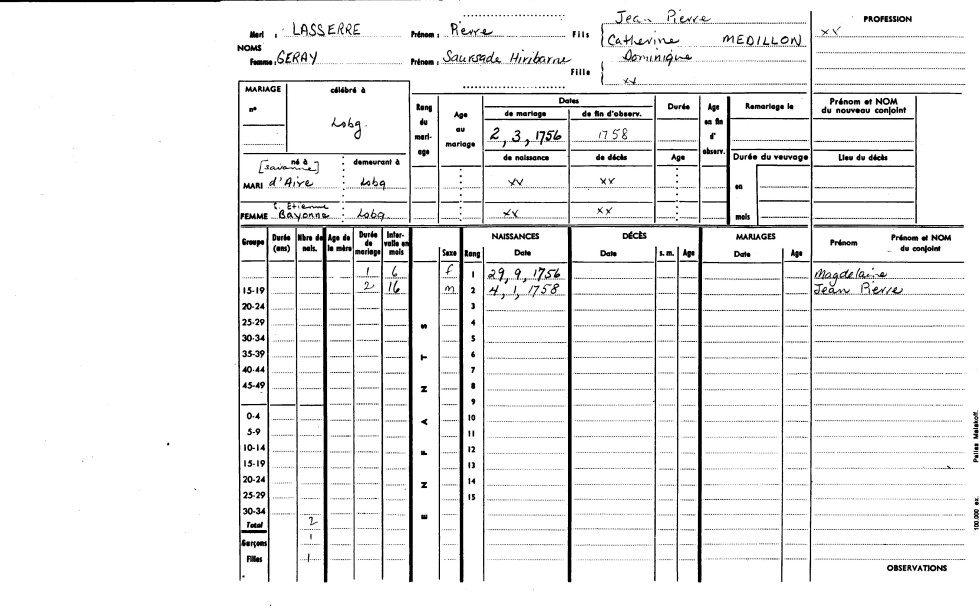 Jean Pierre
PROFESSION
Mari : LASSERRE Prénom : Pierre Fils Catherine MEDILLON xx
NOMS
Femme : GERAY Prénom : Saursade Hiribarne Fille Dominique
xx
MARIAGE célébré à Rang du mari- age Age au mariage Dates Durée Age en fin d' observ. Remariage le Prénom et NOM du nouveau conjoint
n° de mariage de fin d'observ.
Lobg. 2, 3, 1756 1758
né à demeurant à de naissance de décès Age Durée du veuvage Lieu du décès
MARI d'Aire Lobg xx xx en
FEMME S. Etienne Bayonne Lobg. xx xx mois
Groupe Durée (ans) Nbre de nais. Age de la mère Durée de mariage Inter- valle en mois Sexe Rang NAISSANCES Date DÉCÈS Date s. m. Age MARIAGES Date Age Prénom Prénom et NOM du conjoint
1 6 f 1 29, 9, 1756 Magdelaine
15-19 2 16 m 2 4, 1, 1758 Jean Pierre
20-24 3
25-29 S 4
30-34 5
35-39 T 6
40-44 7
45-49 N 8
9
0-4 A 10
5-9 11
10-14 F 12
15-19 13
20-24 N 14
25-29 15
30-34 E
Total 2
Garçons 1
Filles 1
OBSERVATIONS
100.000 ex. Pallas Malakoff.